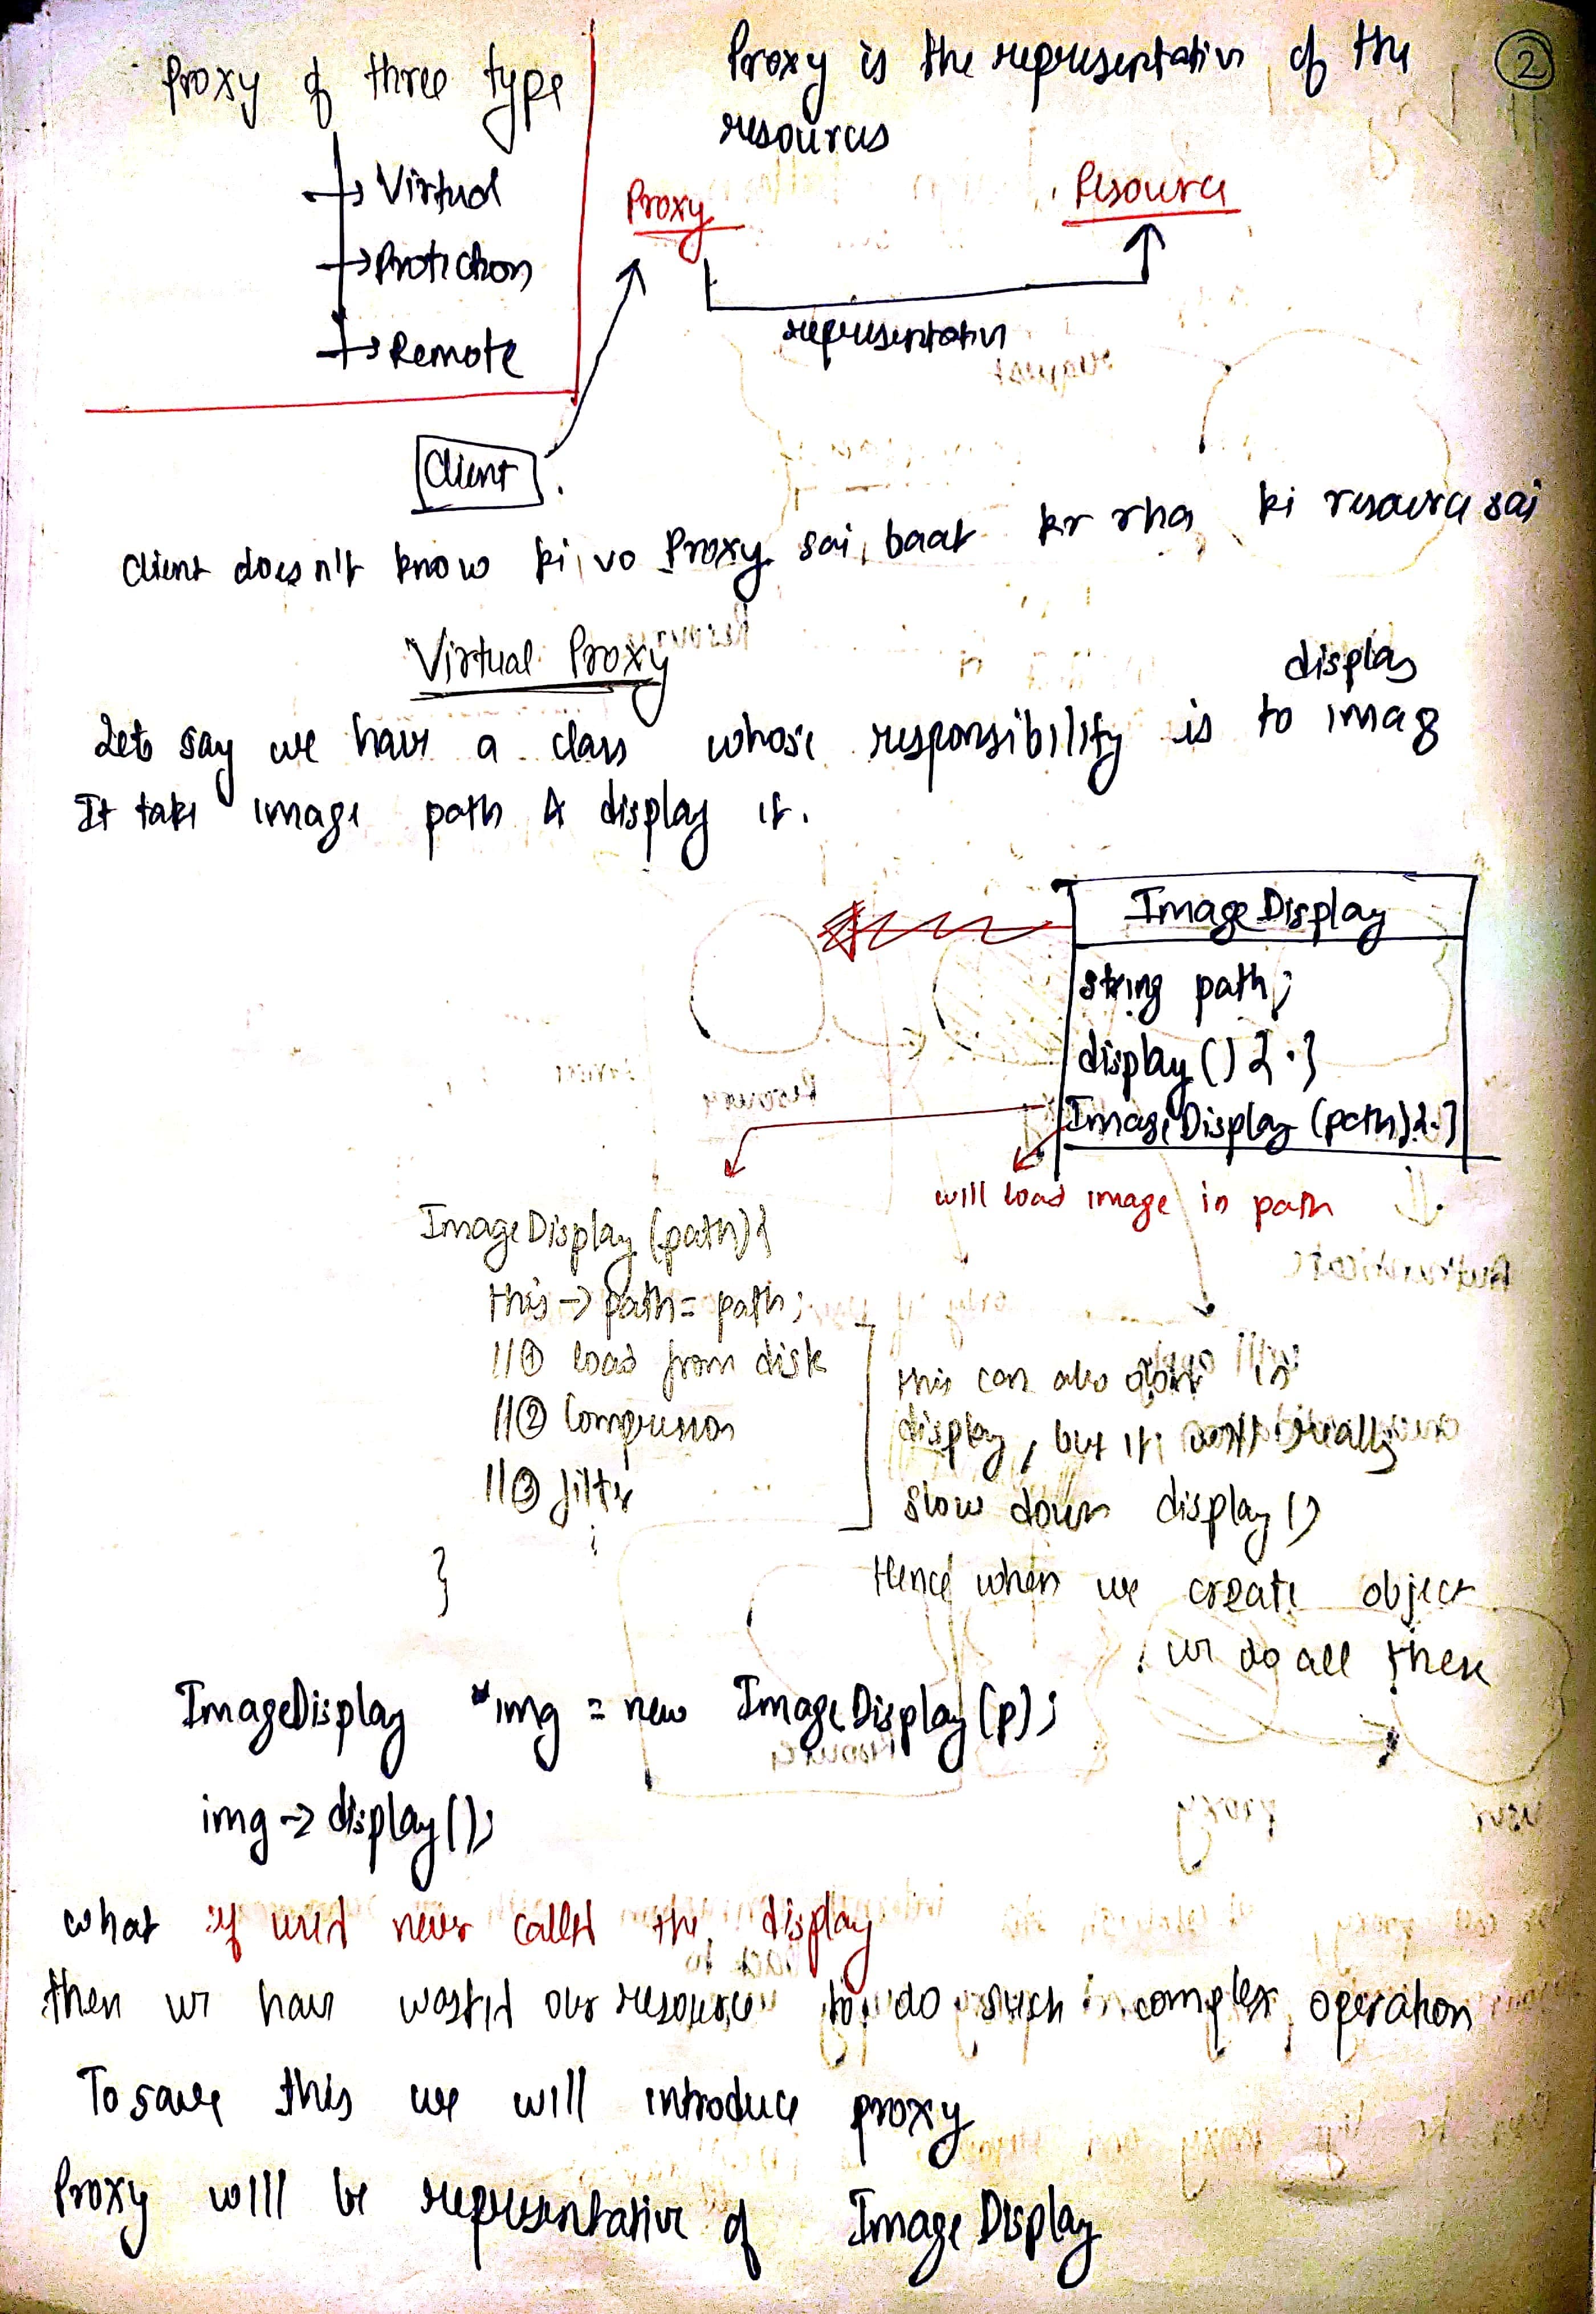 Proxy of three type
→ Virtual
→ Protection
→ Remote
Proxy is the representative of the
resources
2
Proxy
Resource
representative
Client
Client doesn't know ki vo Proxy sai baat kr rha ki resource sai
Virtual Proxy
display
Lets say we have a class whose responsibility is to image
It take image path & display it.
ImageDisplay
string path;
display () { . }
ImageDisplay (path) { . }
will load image in path
ImageDisplay (path) {
this -> path = path;
// ① load from disk
// ② Compression
// ③ filter
}
this can also done in
display, but it really
slow down display ()
Hence when we create object
we do all these
ImageDisplay *img = new ImageDisplay (p);
img -> display ();
what if we never called the display
then we have wasted our resource to do such complex operation
To save this we will introduce proxy
Proxy will be representative of Image Display